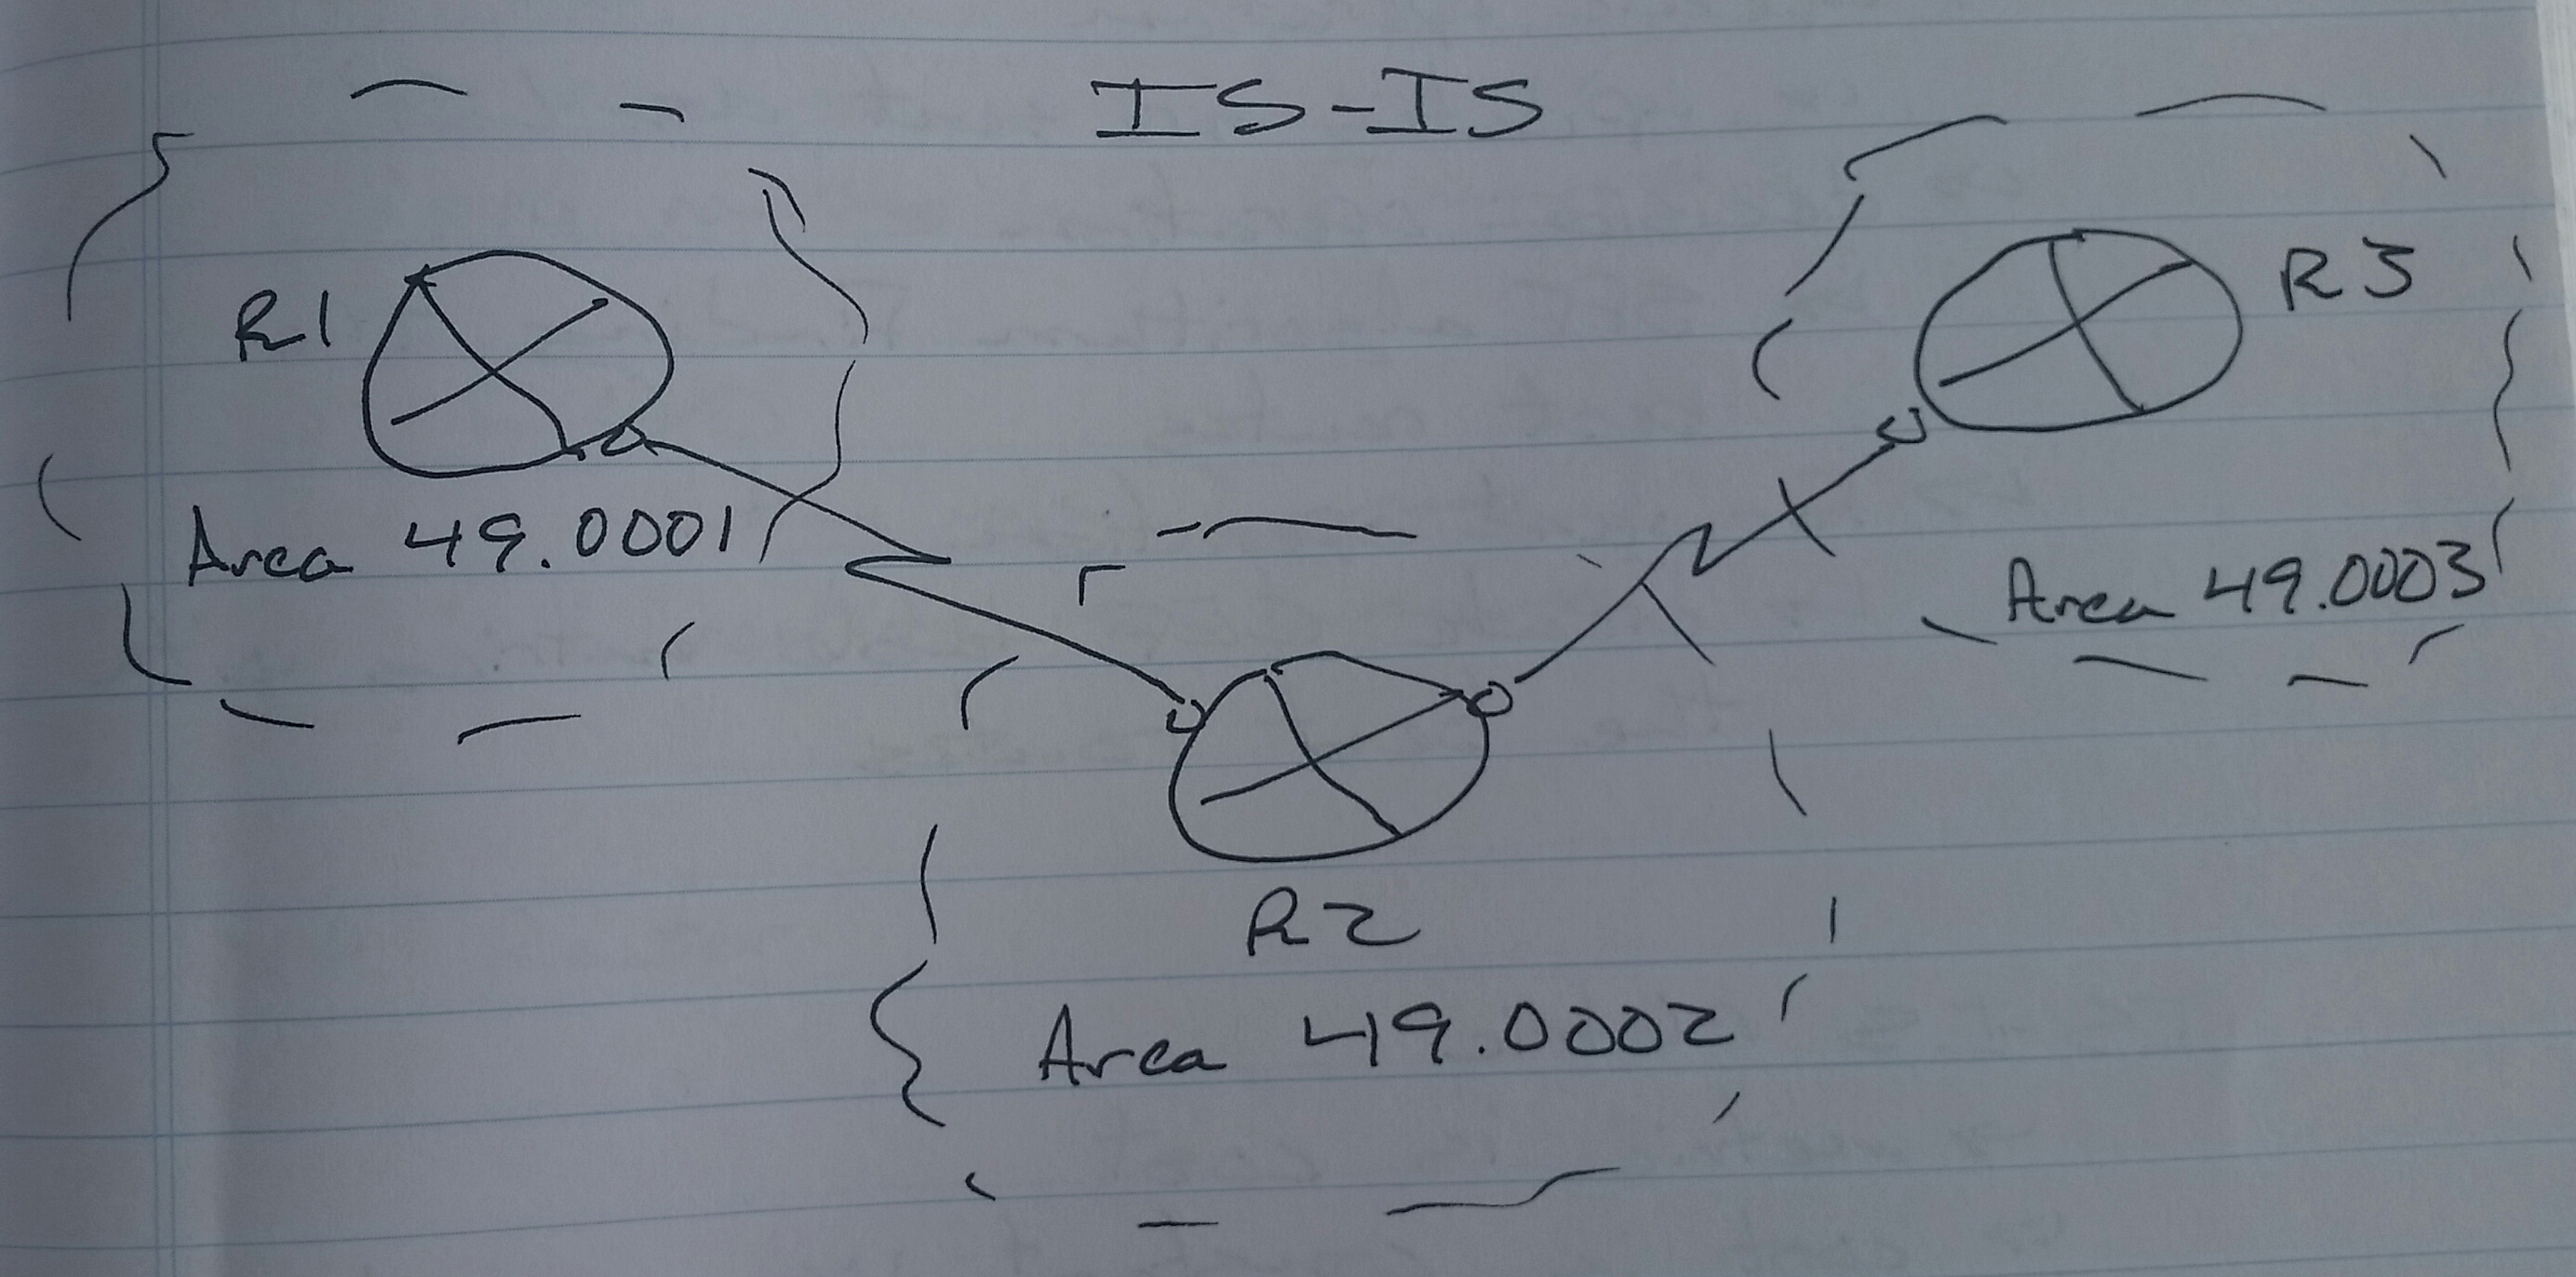 IS-IS
R1
Area 49.0001
R3
Area 49.0003
R2
Area 49.0002